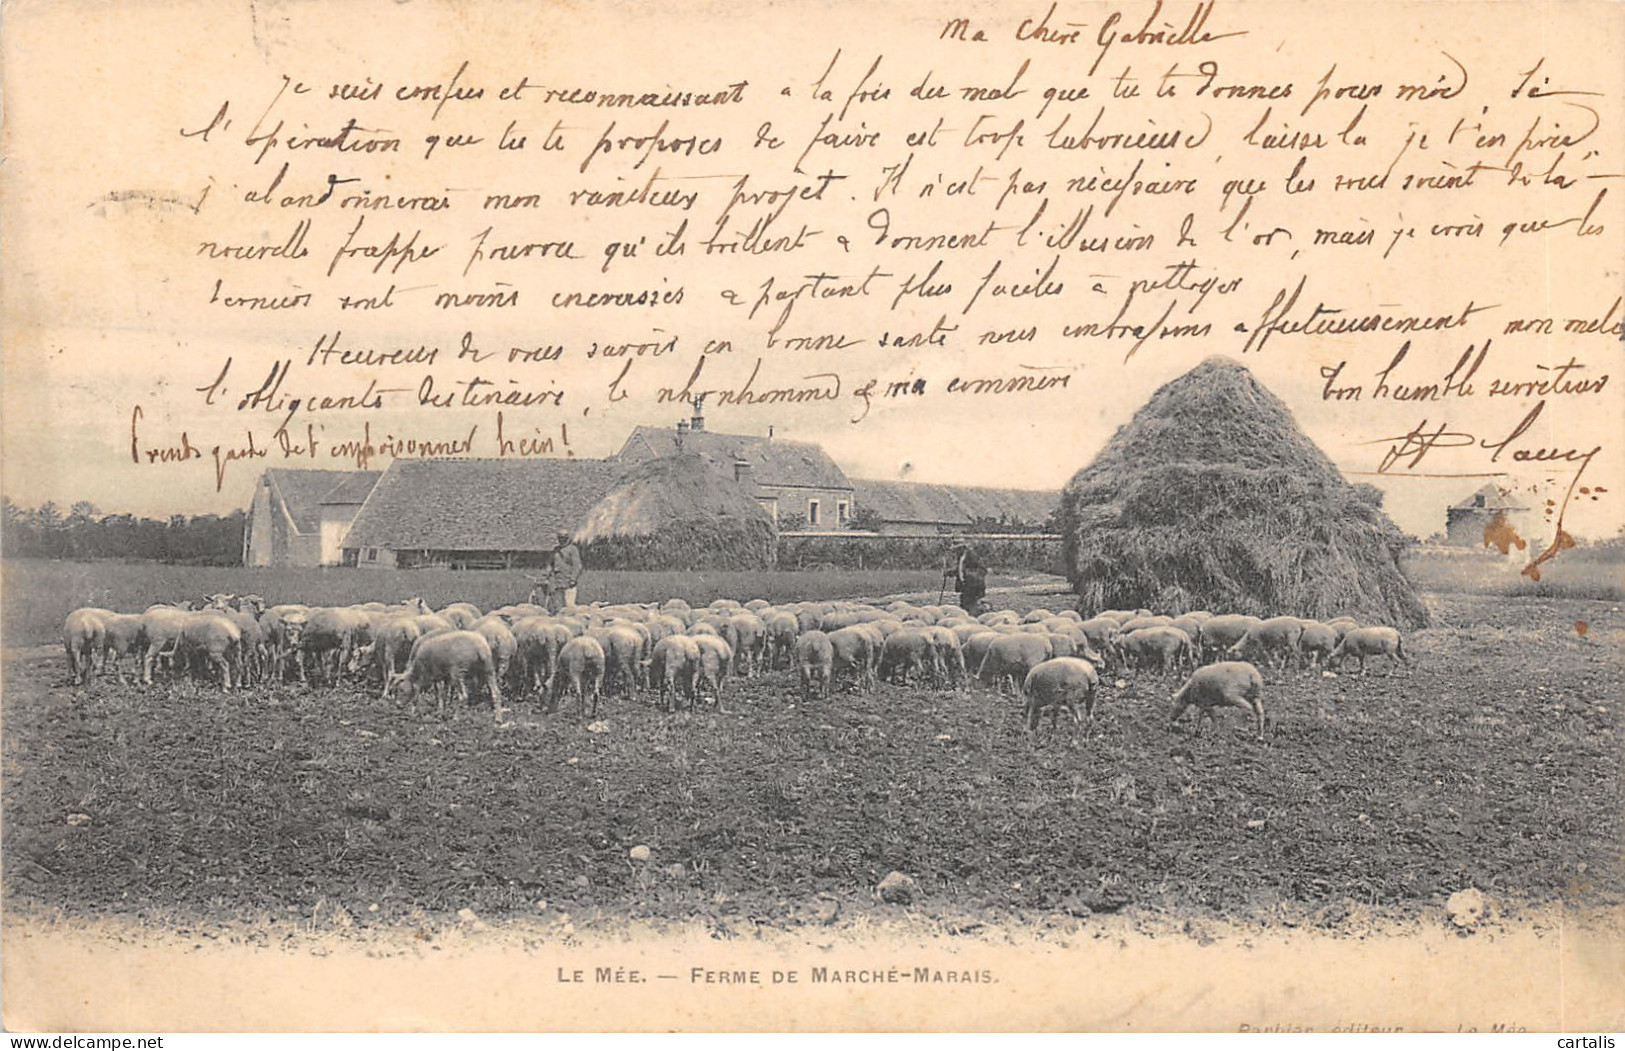 Ma chère Gabrielle
Je suis confus et reconnaissant à la fois du mal que tu te donnes pour moi, si
l'opération que tu te proposes de faire est trop laborieuse, laisse la je t'en prie,
j'abandonnerai mon vaniteux projet. Il n'est pas nécessaire que les sous soient de la
nouvelle frappe pourvu qu'ils brillent & donnent l'illusion de l'or, mais je crois que les
derniers sont moins encrassés & partant plus faciles à nettoyer
Heureux de vous savoir en bonne santé nous embrassons affectueusement mon
l'obligeante destinaire, le & ma commère
Ton humble serviteur
Prends garde de t'empoisonner, hein!
LE MÉE. — FERME DE MARCHÉ-MARAIS.
Barbier, éditeur — Le Mée
cartalis